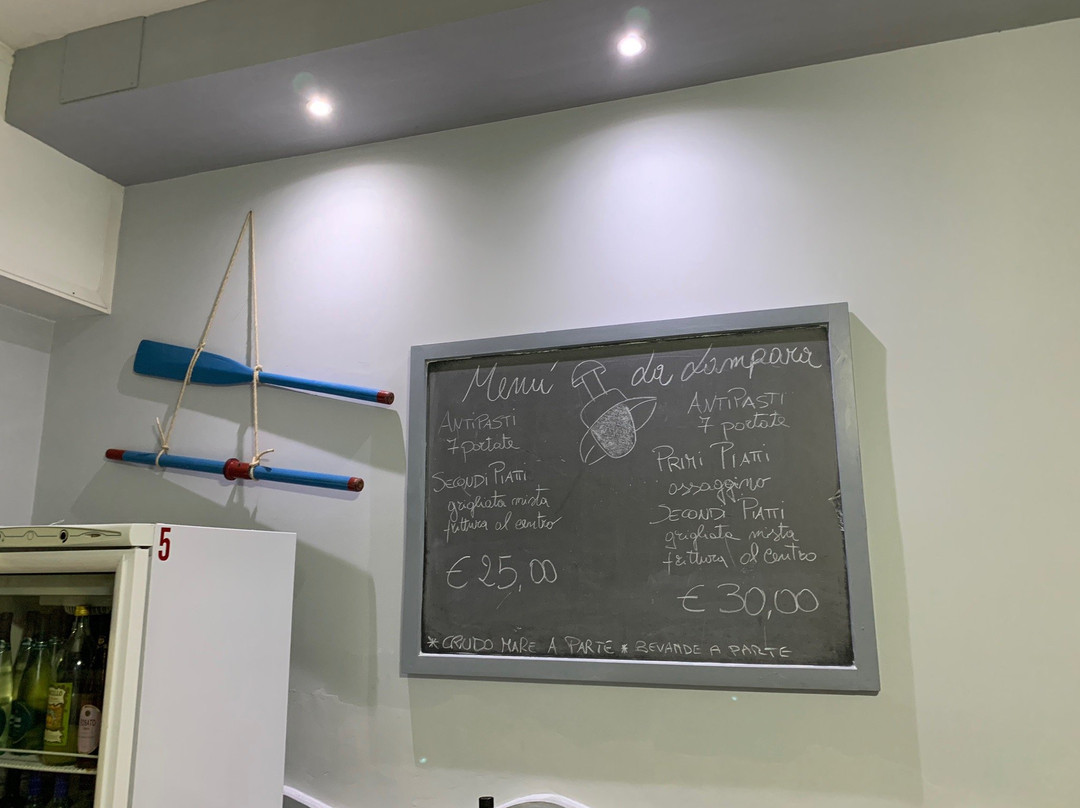 Menú La Lampara
ANTIPASTI
7 portate
SECONDI PIATTI
grigliata mista
frittura al centro
€ 25,00
ANTIPASTI
7 portate
PRIMI PIATTI
assaggino
SECONDI PIATTI
grigliata mista
frittura al centro
€ 30,00
* CRUDO MARE A PARTE * BEVANDE A PARTE
5